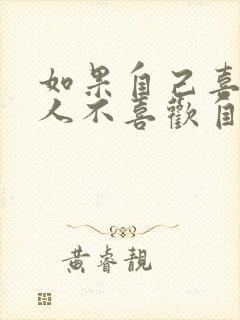 如果自己喜
人不喜歡自
黃睿靚